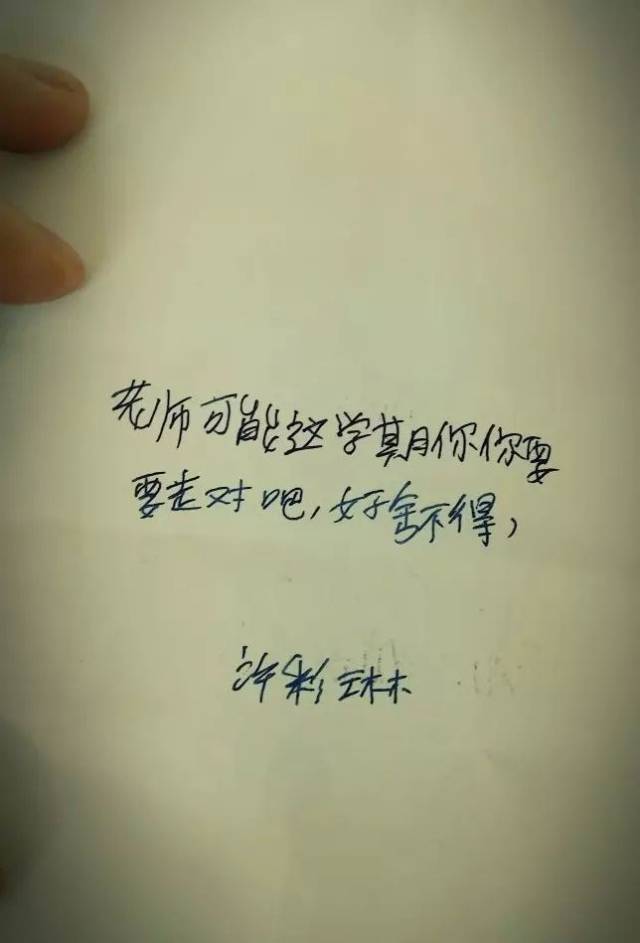 老师可能这学期你你要
要走对吧，好舍不得，
许彩琳